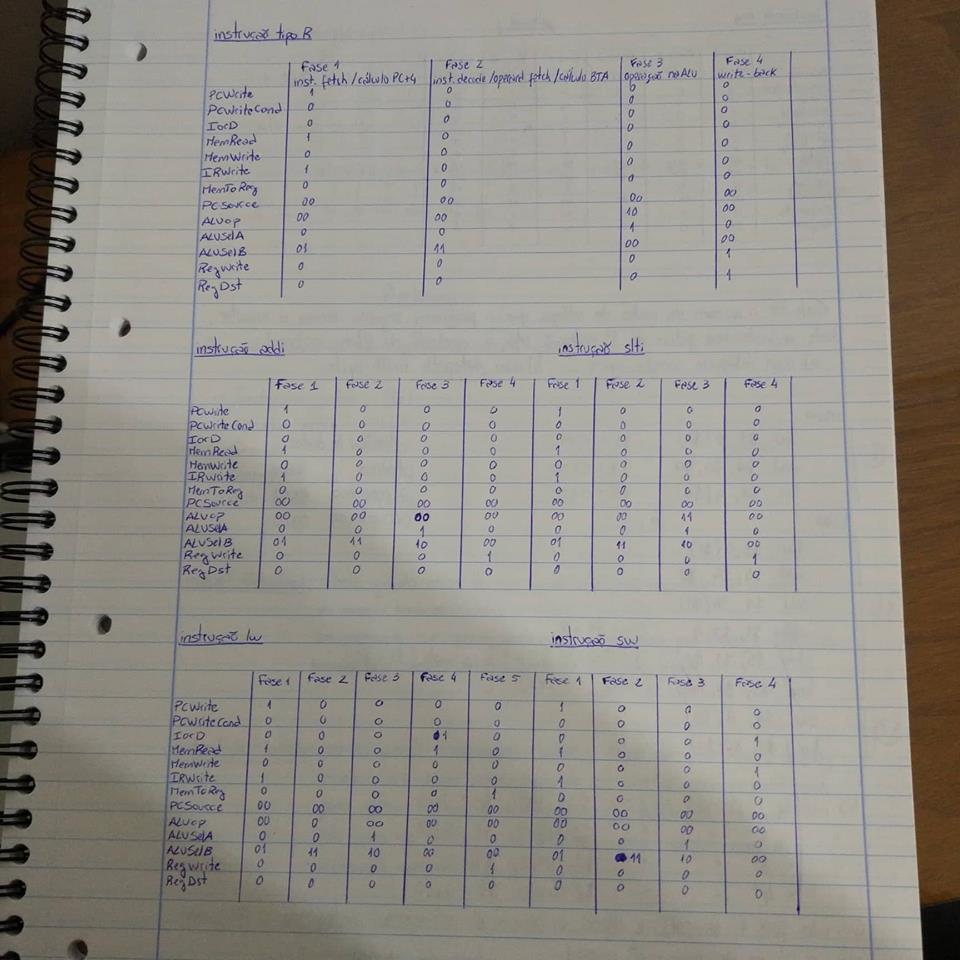 instrução tipo R
Fase 1 Fase 2 Fase 3 Fase 4
inst. fetch / cálculo PC+4 inst. decode / operand fetch / cálculo BTA operação na ALU write-back
PCWrite 1 0 0 0
PCWriteCond 0 0 0 0
IorD 0 0 0 0
MemRead 1 0 0 0
MemWrite 0 0 0 0
IRWrite 1 0 0 0
MemToReg 0 0 0 0
PCSource 00 00 00 00
ALUop 00 00 10 00
ALUSelA 0 0 1 0
ALUSelB 01 11 00 00
RegWrite 0 0 0 1
RegDst 0 0 0 1
instrução addi instrução slti
Fase 1 Fase 2 Fase 3 Fase 4 Fase 1 Fase 2 Fase 3 Fase 4
PCWrite 1 0 0 0 1 0 0 0
PCWriteCond 0 0 0 0 0 0 0 0
IorD 0 0 0 0 0 0 0 0
MemRead 1 0 0 0 1 0 0 0
MemWrite 0 0 0 0 0 0 0 0
IRWrite 1 0 0 0 1 0 0 0
MemToReg 0 0 0 0 0 0 0 0
PCSource 00 00 00 00 00 00 00 00
ALUop 00 00 00 00 00 00 11 00
ALUSelA 0 0 1 0 0 0 1 0
ALUSelB 01 11 10 00 01 11 10 00
RegWrite 0 0 0 1 0 0 0 1
RegDst 0 0 0 0 0 0 0 0
instrução lw instrução sw
Fase 1 Fase 2 Fase 3 Fase 4 Fase 5 Fase 1 Fase 2 Fase 3 Fase 4
PCWrite 1 0 0 0 0 1 0 0 0
PCWriteCond 0 0 0 0 0 0 0 0 0
IorD 0 0 0 1 0 0 0 0 1
MemRead 1 0 0 1 0 1 0 0 0
MemWrite 0 0 0 0 0 0 0 0 1
IRWrite 1 0 0 0 0 1 0 0 0
MemToReg 0 0 0 0 1 0 0 0 0
PCSource 00 00 00 00 00 00 00 00 00
ALUop 00 0 00 00 00 00 00 00 00
ALUSelA 0 0 1 0 0 0 0 1 0
ALUSelB 01 11 10 00 00 01 11 10 00
RegWrite 0 0 0 0 1 0 0 0 0
RegDst 0 0 0 0 0 0 0 0 0